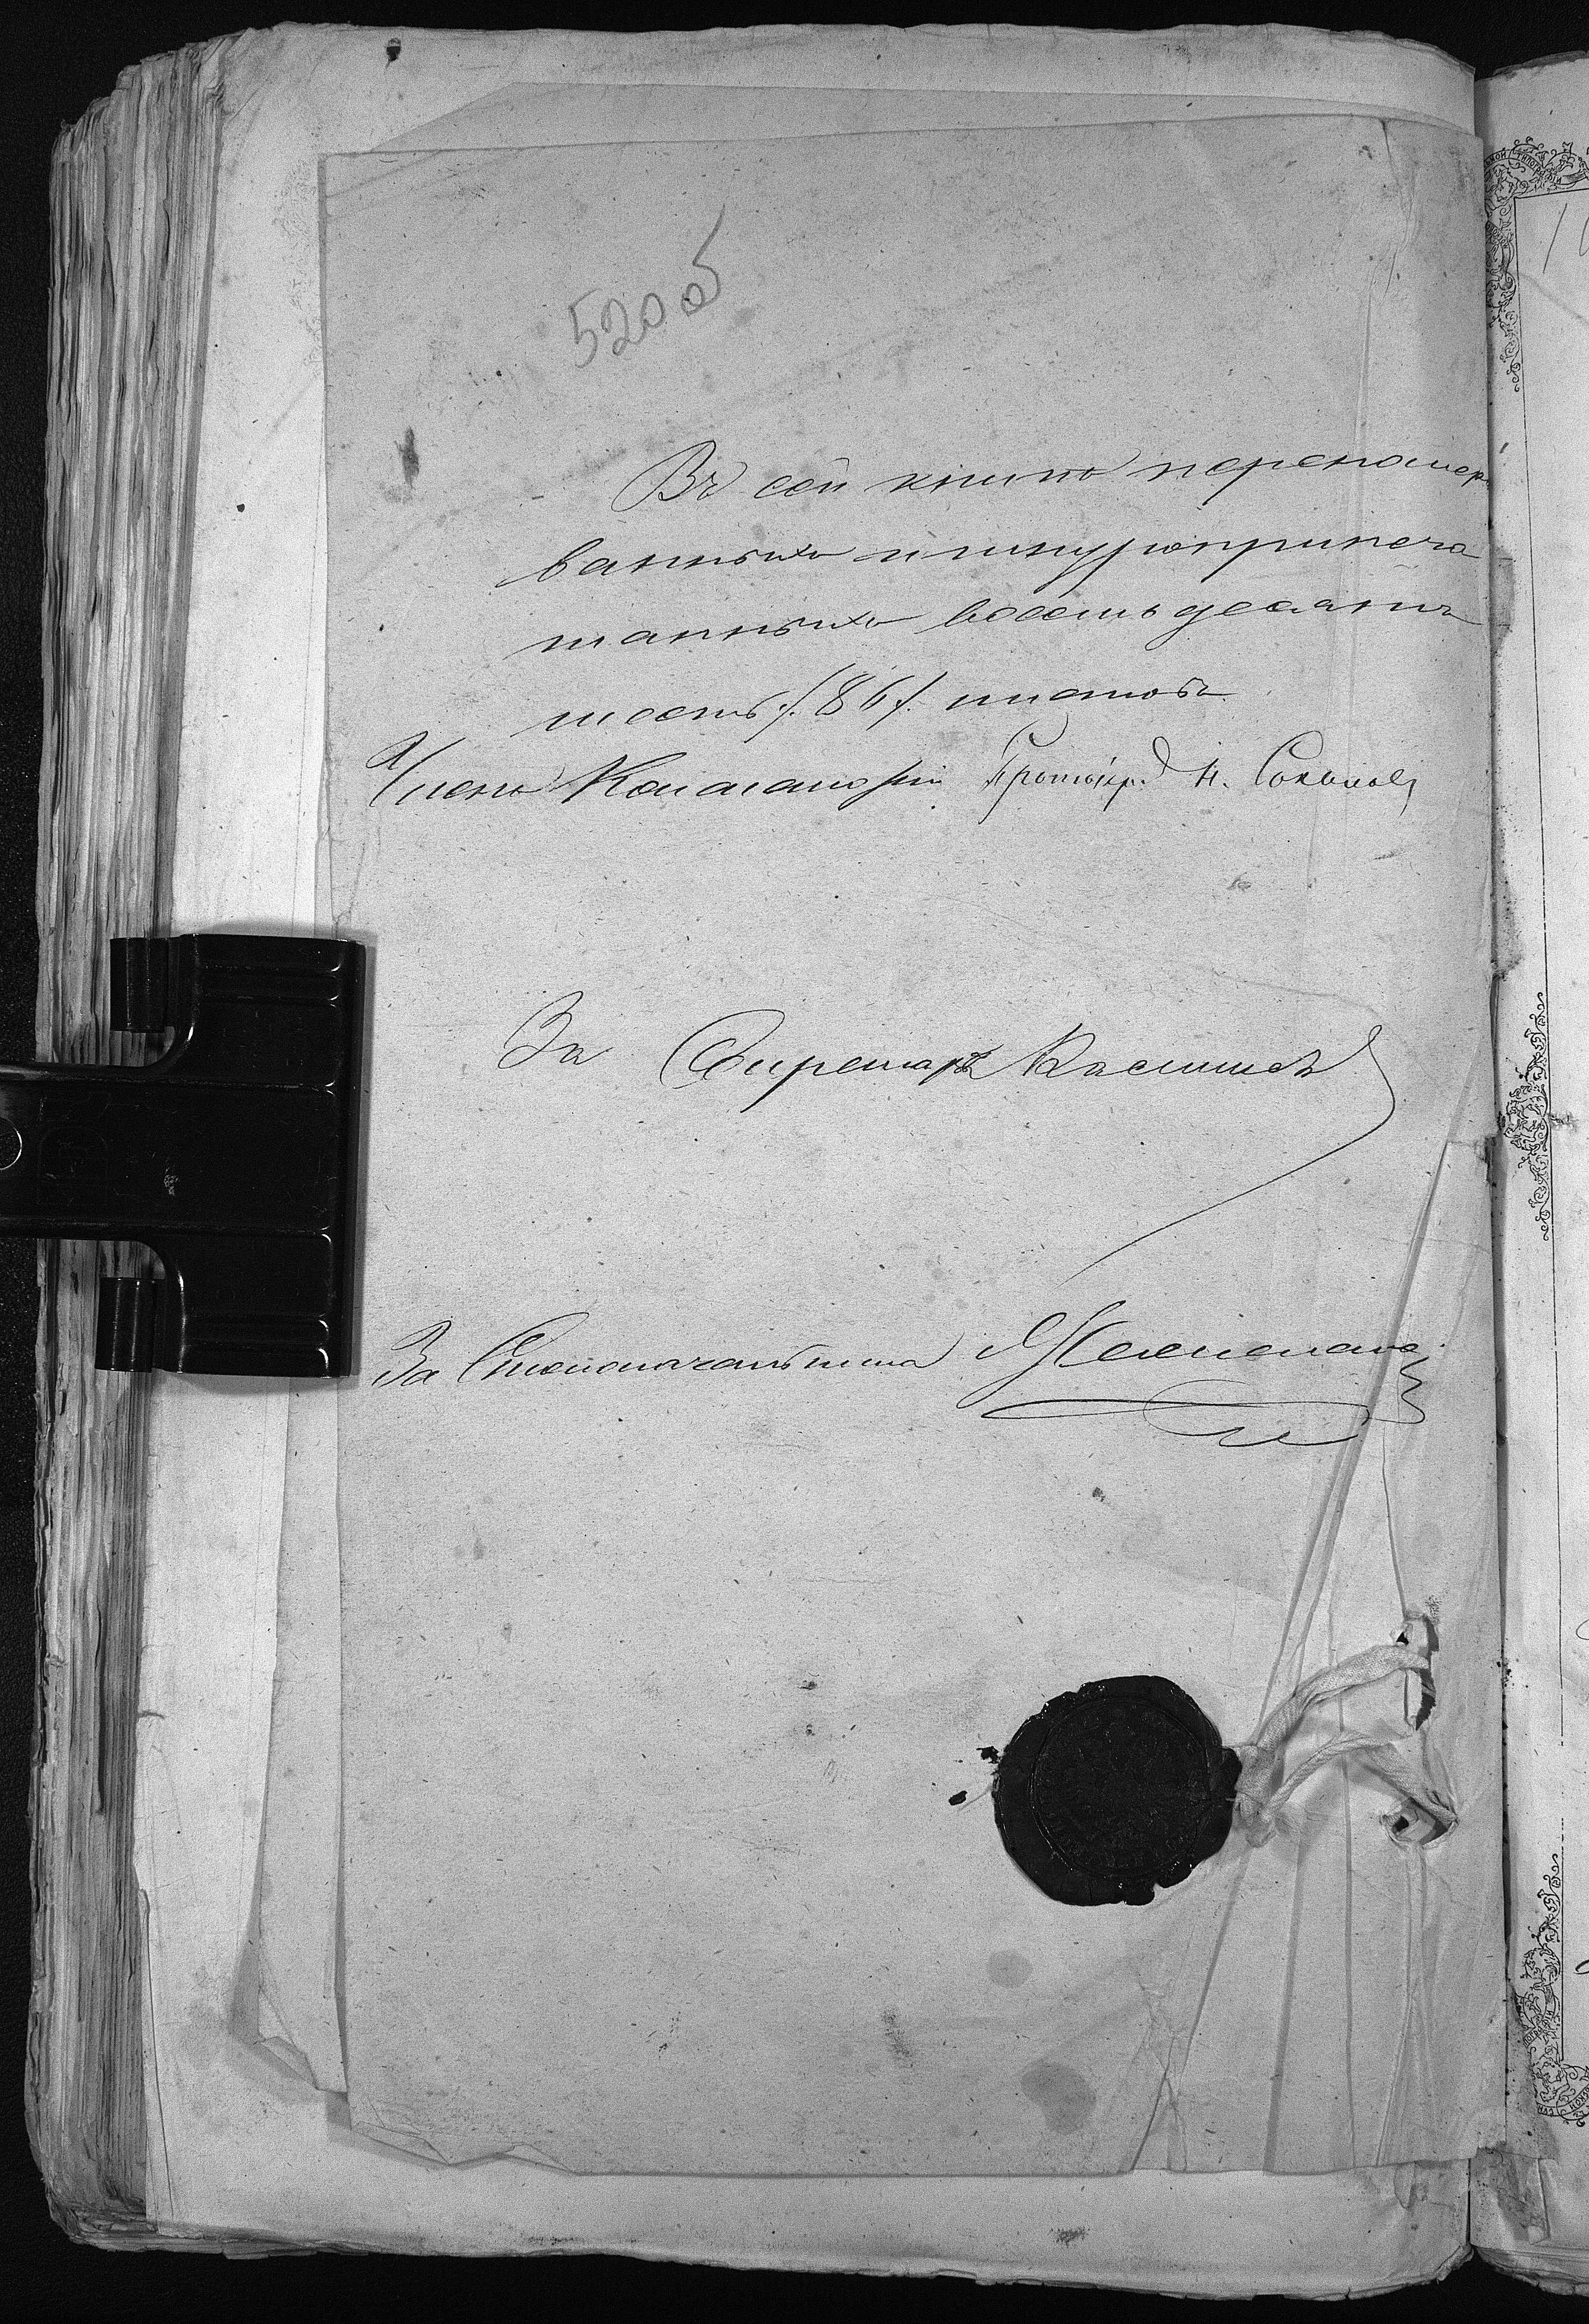 520об
Въ сей книгѣ переномер
ванныхъ и шнуроприпеча
танныхъ восемьдесятъ
шесть /:86:/ листовъ.
Членъ Консисторіи Протоіер. Н. Соколовъ
За Секретаря
За Столоначальника